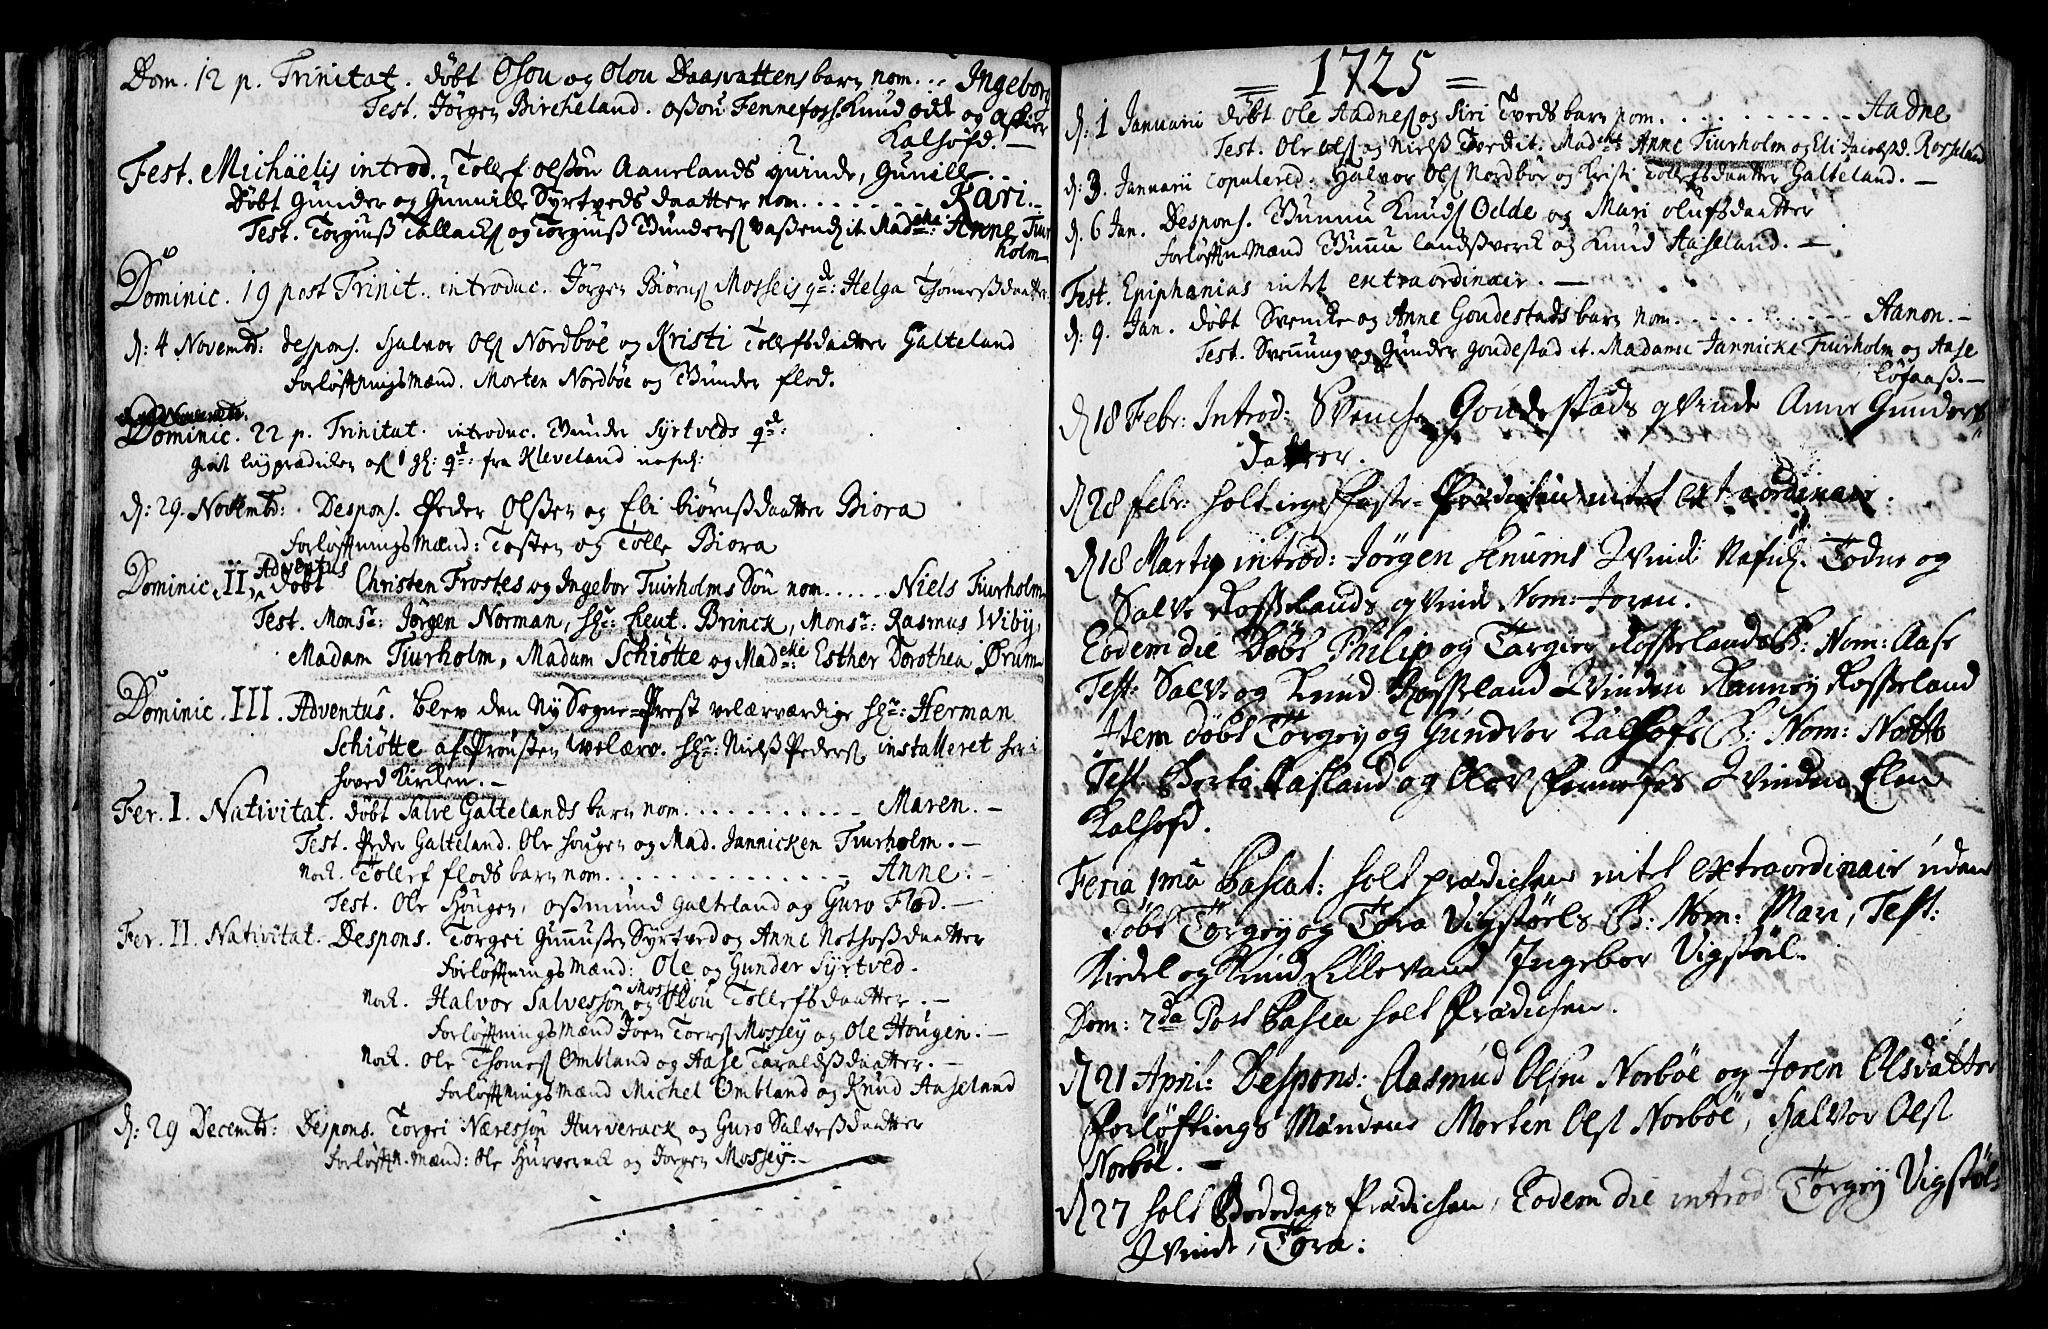 Dom. 12 p. Trinitat. døbt Osou og Olou Daasvattens barn nom. .. Ingeborg
Test. Jörgen Bircheland. Oßou Fennefoss. Knud odd og
Kalhofd. —
Fest. Michäelis introd. Tollef olßøn Aanelands qvinde, Gunille. . .
Døbt Gunder og Gunnille Syrtveds daatter nom. . . . . . . . Kari. —
Test. Torgiuß Tallacks og Torgiuß Gunders Vaßend it. Madeke: Anne Tuur
holm —
Dominic. 19 post Trinit. introduc. Jørgen Biørns Mosseis qd: Helga Thomeßdaatter
d: 4 Novembr: despons. Halvor Ols Nordbøe og Kristi Tollefsdaatter Galteland
forløftningsmænd. Morten Nordbøe og Gunder flod.
Dominic. 22 p. Trinitat. introduc. Gunder Syrtveds qd:
fra Kleveland
d: 29. Novembr: Despons. Peder Olßen og Eli biørnßdaatter Biora
forløftningsmænd: Tosten og Tolle Biora
Adventus
Dominic. II. døbt Christen Frostes og Ingebor Tuirholms Søn nom. . . . . . Niels Tuirholm
Test. Monsr: Jørgen Norman, Hr: Leut. Brinck, Monsr: Rasmus Wiby,
Madam Tiurholm, Madam Schiøtte og Madeke: Esther Dorothea Ørum
Dominic. III. Adventus. blev den Ny Sogne-Prest velærværdige Hr: Herman
Schiøtte af Prousten welærv. Hr: Nielß Peders installeret her i
hoved Kircken. —
Fer. I. Nativitat. døbt Salve Galtelands barn nom. . . . . . . . . . . Maren. —
Test. Peder Galteland. Ole Hougen og Mad. Jannicken Tuirholm. —
Nock. Tollef flods barn nom. . . . . . . . . . . . . . . Anne. —
Test. Ole Hougen, Oßmund Galteland og Guro Flod. —
Fer. II. Nativitat. Despons. Torgei Gunnußen Syrtved og Anne Nothoßdaatter
forløftningsmænd: Ole og Gunder Syrtved.
Mossei
Nock. Halvor Salvessøn og Olou Tollefsdaatter. —
forløftningsmænd Joen Toers Mossey og Ole Hougen. —
Nock. Ole Thomes Ombland og Aase Taraldsdaatter. —
forløftningsmænd Michel Ombland og Knud Aaseland
d: 29 Decembr: Despons. Torgei Næressøn Hurverack og Guro Salveßdaatter
forløftn. mænd: Ole Hurverack og Jørgen Mossey. —
= 1725 =
d: 1 Januarii døbt Ole Aadnes og Siri Tveds barn nom. . . . . . . . . . . Aadne
Test. Ole Ols og Nielß Tved it. Madeke Anne Tiurholm og Eli Jacobsd. Rosseland
d: 3. Januarii copulered: Halvor Ols Nordbøe og Kristi Tollefsdaatter Galteland. —
d. 6 Jan. Despons. Gunnu Knuds Odde og Mari olufsdaatter
forløftn. Mænd Gunnu landsverk og Knud Aaseland. —
Fest. Epiphanias intet extraordinair. —
d: 9. Jan. døbt Svencke og Anne Goudestads barn nom. . . . . . . . . . . Aanon. —
Test. Svenung og Gunder Goudestad it. Madame Jannicke Tuirholm og Aase
Løfaaß. —
d 18 Febr: Introd: Svencke Goudestads qvinde Anne Gunders
datter.
d 28 febr: holt inge Faste-Prædichen intet extraordinair.
d 18 Martij introd: Jørgen Enums Qvinde Nafnl. Todne og
Salve Rosselands qvinde, Nom: Joren.
Eodem die Døbt Philip og Targier Rosselands B: Nom: Aase
Test: Salve og Knud Rosseland Qvinden Rannei Rosseland
Item døbt Torgey og Gundvor Kalhofs B: Nom: Notto
Test Aasland og Olov Fennefos Qvinden Elen
Kalhofd.
Feria 1ma Pascat: holt prædichen intet extraordinair uden
døbt Torgey og Tora Vigstøels B: Nom: Mari, Test:
Kiedel og Knud Lillevand Ingebor Vigstøel.
Dom: 2da Post Pasca holt Prædichen.
d 21 April: Despons: Aasmud Olsen Norbøe og Joren Olsdatter
Forløftings Mændene Morten Olst Norbøe, Halvor Olst
Norbøe. —
d 27 holt Bededags Prædichen, Eodem die introd Torgey Vigstøl
Qvinde, Tora: